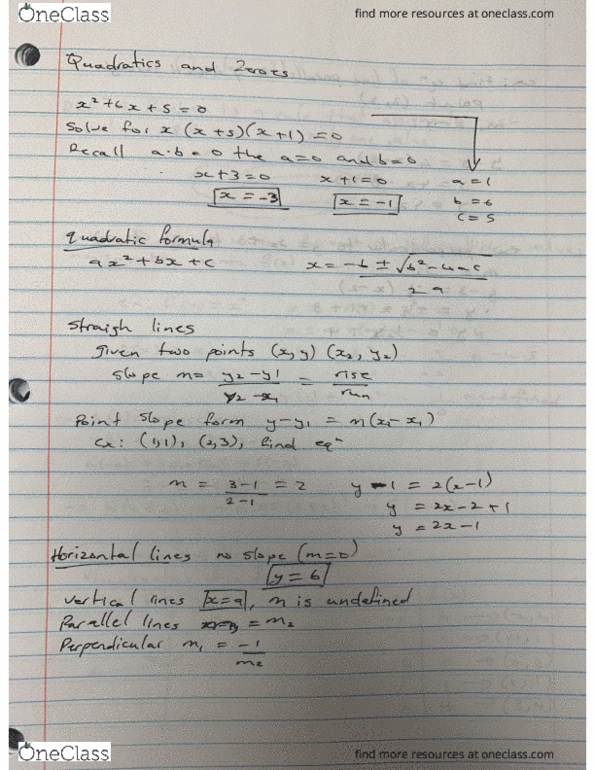 OneClass find more resources at oneclass.com
Quadratics and Zeroes
x² + 6x + 5 = 0
Solve for x (x+5)(x+1) = 0
Recall a·b = 0 the a=0 and b=0
x+3=0 x+1=0 a=1
x = -3 x = -1 b = 6
c = 5
quadratic formula
ax² + bx + c x = -b ± √b² - 4ac
2a
Straigh lines
Given two points (x, y) (x₂, y₂)
Slope m = y₂ - y1 = rise
x₂ - x₁ run
Point slope form y - y₁ = m(x₂ - x₁)
ex: (1,1), (2,3), find eqⁿ
m = 3-1 = 2 y - 1 = 2(x-1)
2-1 y = 2x - 2 + 1
y = 2x - 1
Horizontal lines no slope (m=0)
y = b
Vertical lines x=a, m is undefined
Parallel lines = m₂
Perpendicular m₁ = -1
m₂
OneClass find more resources at oneclass.com